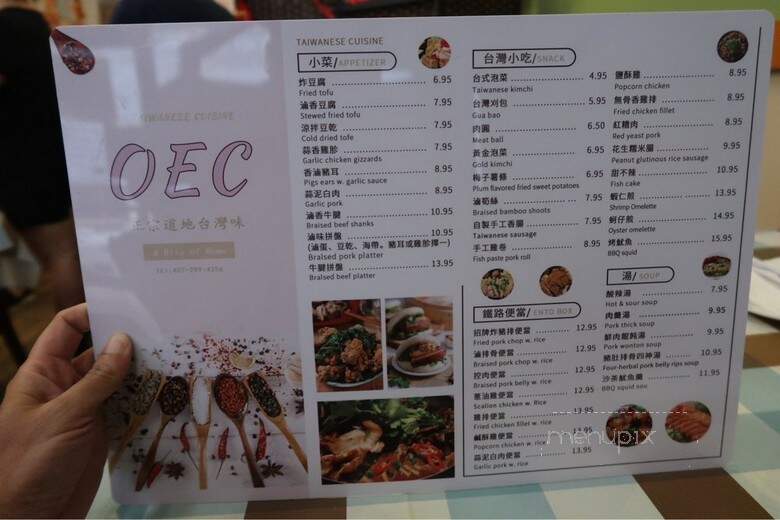 TAIWANESE CUISINE
OEC
正宗道地台灣味
TAIWANESE CUISINE
小菜/APPETIZER
炸豆腐 6.95
Fried tofu
滷香豆腐 7.95
Stewed fried tofu
涼拌豆乾 7.95
Cold dried tofe
蒜香雞胗 7.95
Garlic chicken gizzards
香滷豬耳 8.95
Pigs ears w. garlic sauce
蒜泥白肉 8.95
Garlic pork
滷香牛腱 10.95
Braised beef shanks
滷味拼盤 10.95
(滷蛋、豆乾、海帶。豬耳或雞胗擇一)
Braised pork platter
牛腱拼盤 13.95
Braised beef platter
台灣小吃/SNACK
台式泡菜 4.95
Taiwanese kimchi
台灣刈包 5.95
Gua bao
肉圓 6.50
Meat ball
黃金泡菜 6.95
Gold kimchi
梅子薯條 6.95
Plum flavored fried sweet potatoes
滷筍絲 7.95
Braised bamboo shoots
自製手工香腸 7.95
Taiwanese sausage
手工雞卷 8.95
Fish paste pork roll
鹽酥雞 8.95
Popcorn chicken
無骨香雞排 8.95
Fried chicken fillet
紅糟肉 8.95
Red yeast pork
花生糯米腸 9.95
Peanut glutinous rice sausage
甜不辣 10.95
Fish cake
蝦仁煎 13.95
Shrimp Omelette
蚵仔煎 14.95
Oyster omelette
烤魷魚 15.95
BBQ squid
鐵路便當/ENTO BOX
招牌炸豬排便當 12.95
Fried pork chop w. rice
滷排骨便當 12.95
Braised pork chop w. rice
控肉便當 12.95
Braised pork belly w. rice
蔥油雞便當 12.95
Scallion chicken w. rice
雞排便當 12.95
Fried chicken fillet w. rice
鹹酥雞便當
Popcorn chicken w. rice
蒜泥白肉便當 13.95
Garlic pork w. rice
湯/SOUP
酸辣湯 7.95
Hot & sour soup
肉羹湯 9.95
Pork thick soup
鮮肉餛飩湯 9.95
Pork wonton soup
豬肚排骨四神湯 10.95
Four-herbal pork belly rips soup
沙茶魷魚羹 11.95
BBQ squid sou
menupix